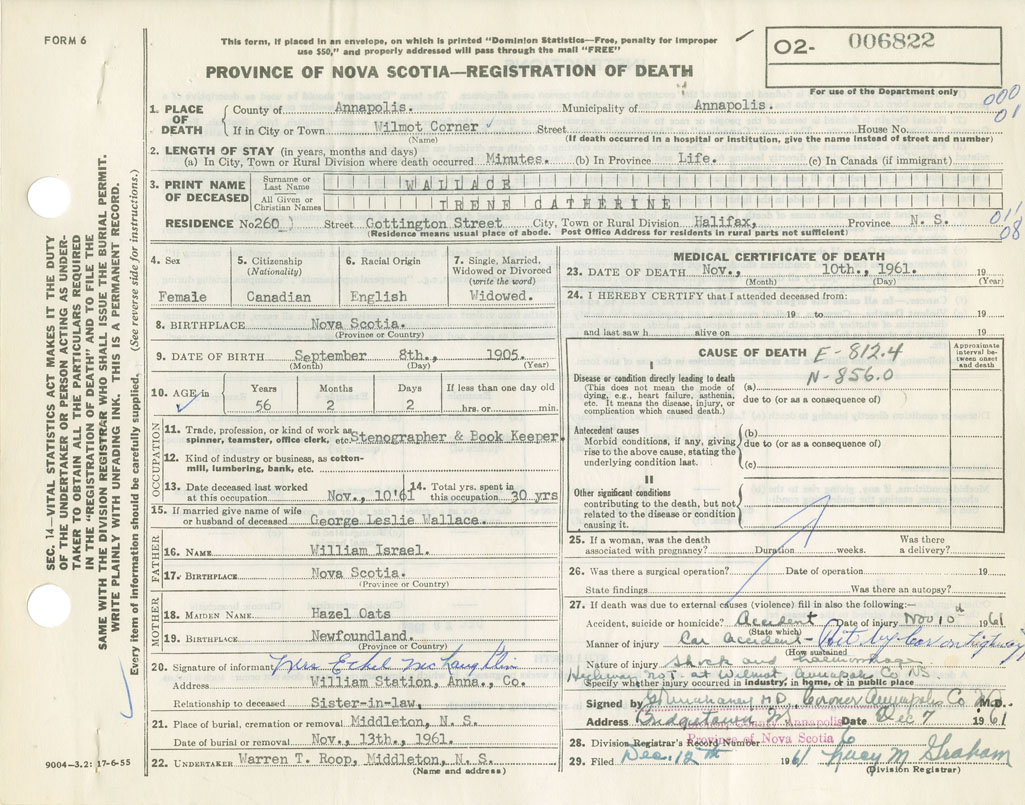 FORM 6
This form, if placed in an envelope, on which is printed "Dominion Statistics—Free, penalty for improper
use $50," and properly addressed will pass through the mail "FREE"
PROVINCE OF NOVA SCOTIA—REGISTRATION OF DEATH
02- 006822
For use of the Department only
000
01
1. PLACE OF DEATH
County of Annapolis. Municipality of Annapolis.
If in City or Town Wilmot Corner Street House No.
(Name) (If death occurred in a hospital or institution, give the name instead of street and number)
2. LENGTH OF STAY (in years, months and days)
(a) In City, Town or Rural Division where death occurred Minutes. (b) In Province Life. (c) In Canada (if immigrant)
3. PRINT NAME OF DECEASED
Surname or Last Name WALLACE
All Given or Christian Names IRENE CATHERINE
RESIDENCE No 260 Street Gottington Street City, Town or Rural Division Halifax, Province N. S.
(Residence means usual place of abode. Post Office Address for residents in rural parts not sufficient)
011
08
4. Sex
Female
5. Citizenship
(Nationality)
Canadian
6. Racial Origin
English
7. Single, Married,
Widowed or Divorced
(write the word)
Widowed.
8. BIRTHPLACE Nova Scotia.
(Province or Country)
9. DATE OF BIRTH September 8th., 1905.
(Month) (Day) (Year)
10. AGE in
Years Months Days If less than one day old
56 2 2 hrs. or min.
OCCUPATION
11. Trade, profession, or kind of work as
spinner, teamster, office clerk, etc. Stenographer & Book Keeper.
12. Kind of industry or business, as cotton-
mill, lumbering, bank, etc.
13. Date deceased last worked
at this occupation Nov., 10'61
14. Total yrs. spent in
this occupation 30 yrs
15. If married give name of wife
or husband of deceased George Leslie Wallace.
FATHER
16. NAME William Israel.
17. BIRTHPLACE Nova Scotia.
(Province or Country)
MOTHER
18. MAIDEN NAME Hazel Oats
19. BIRTHPLACE Newfoundland.
(Province or Country)
20. Signature of informant Mrs McLaughlin
Address William Station, Anna., Co.
Relationship to deceased Sister-in-law,
21. Place of burial, cremation or removal Middleton, N. S.
Date of burial or removal Nov., 13th., 1961.
22. UNDERTAKER Warren T. Roop, Middleton, N. S.
(Name and address)
MEDICAL CERTIFICATE OF DEATH
23. DATE OF DEATH Nov., 10th., 1961. 19
(Month) (Day) (Year)
24. I HEREBY CERTIFY that I attended deceased from:
19 to 19
and last saw h alive on 19
CAUSE OF DEATH E-812.4
N-856.0
Approximate interval between onset and death
I
Disease or condition directly leading to death (a)
(This does not mean the mode of
dying, e.g., heart failure, asthenia,
etc. It means the disease, injury, or
complication which caused death.)
due to (or as a consequence of)
Antecedent causes
Morbid conditions, if any, giving
rise to the above cause, stating the
underlying condition last.
(b)
due to (or as a consequence of)
(c)
II
Other significant conditions
contributing to the death, but not
related to the disease or condition
causing it.
25. If a woman, was the death
associated with pregnancy? Duration weeks. Was there
a delivery?
26. Was there a surgical operation? Date of operation 19
State findings Was there an autopsy?
27. If death was due to external causes (violence) fill in also the following:—
Accident, suicide or homicide? Accident Date of injury Nov 10th 1961
(State which)
Manner of injury Car accident - Hit by Car on highway
(How sustained
Nature of injury Shock and haemorrhage
Highway No 1. at Wilmot Annapolis Co NS.
Specify whether injury occurred in industry, in home, or in public place
Signed by MD, Coroner Annapolis Co M.D.
Address Bridgetown Date Dec 7 1961
Annapolis
Province of Nova Scotia
28. Division Registrar's Record Number 6
29. Filed Dec. 12th 1961 Lucy M Graham
(Division Registrar)
SEC. 14—VITAL STATISTICS ACT MAKES IT THE DUTY
OF THE UNDERTAKER OR PERSON ACTING AS UNDER-
TAKER TO OBTAIN ALL THE PARTICULARS REQUIRED
IN THE "REGISTRATION OF DEATH" AND TO FILE THE
SAME WITH THE DIVISION REGISTRAR WHO SHALL ISSUE THE BURIAL PERMIT.
WRITE PLAINLY WITH UNFADING INK. THIS IS A PERMANENT RECORD.
Every item of information should be carefully supplied. (See reverse side for instructions.)
9004-3.2: 17-6-55